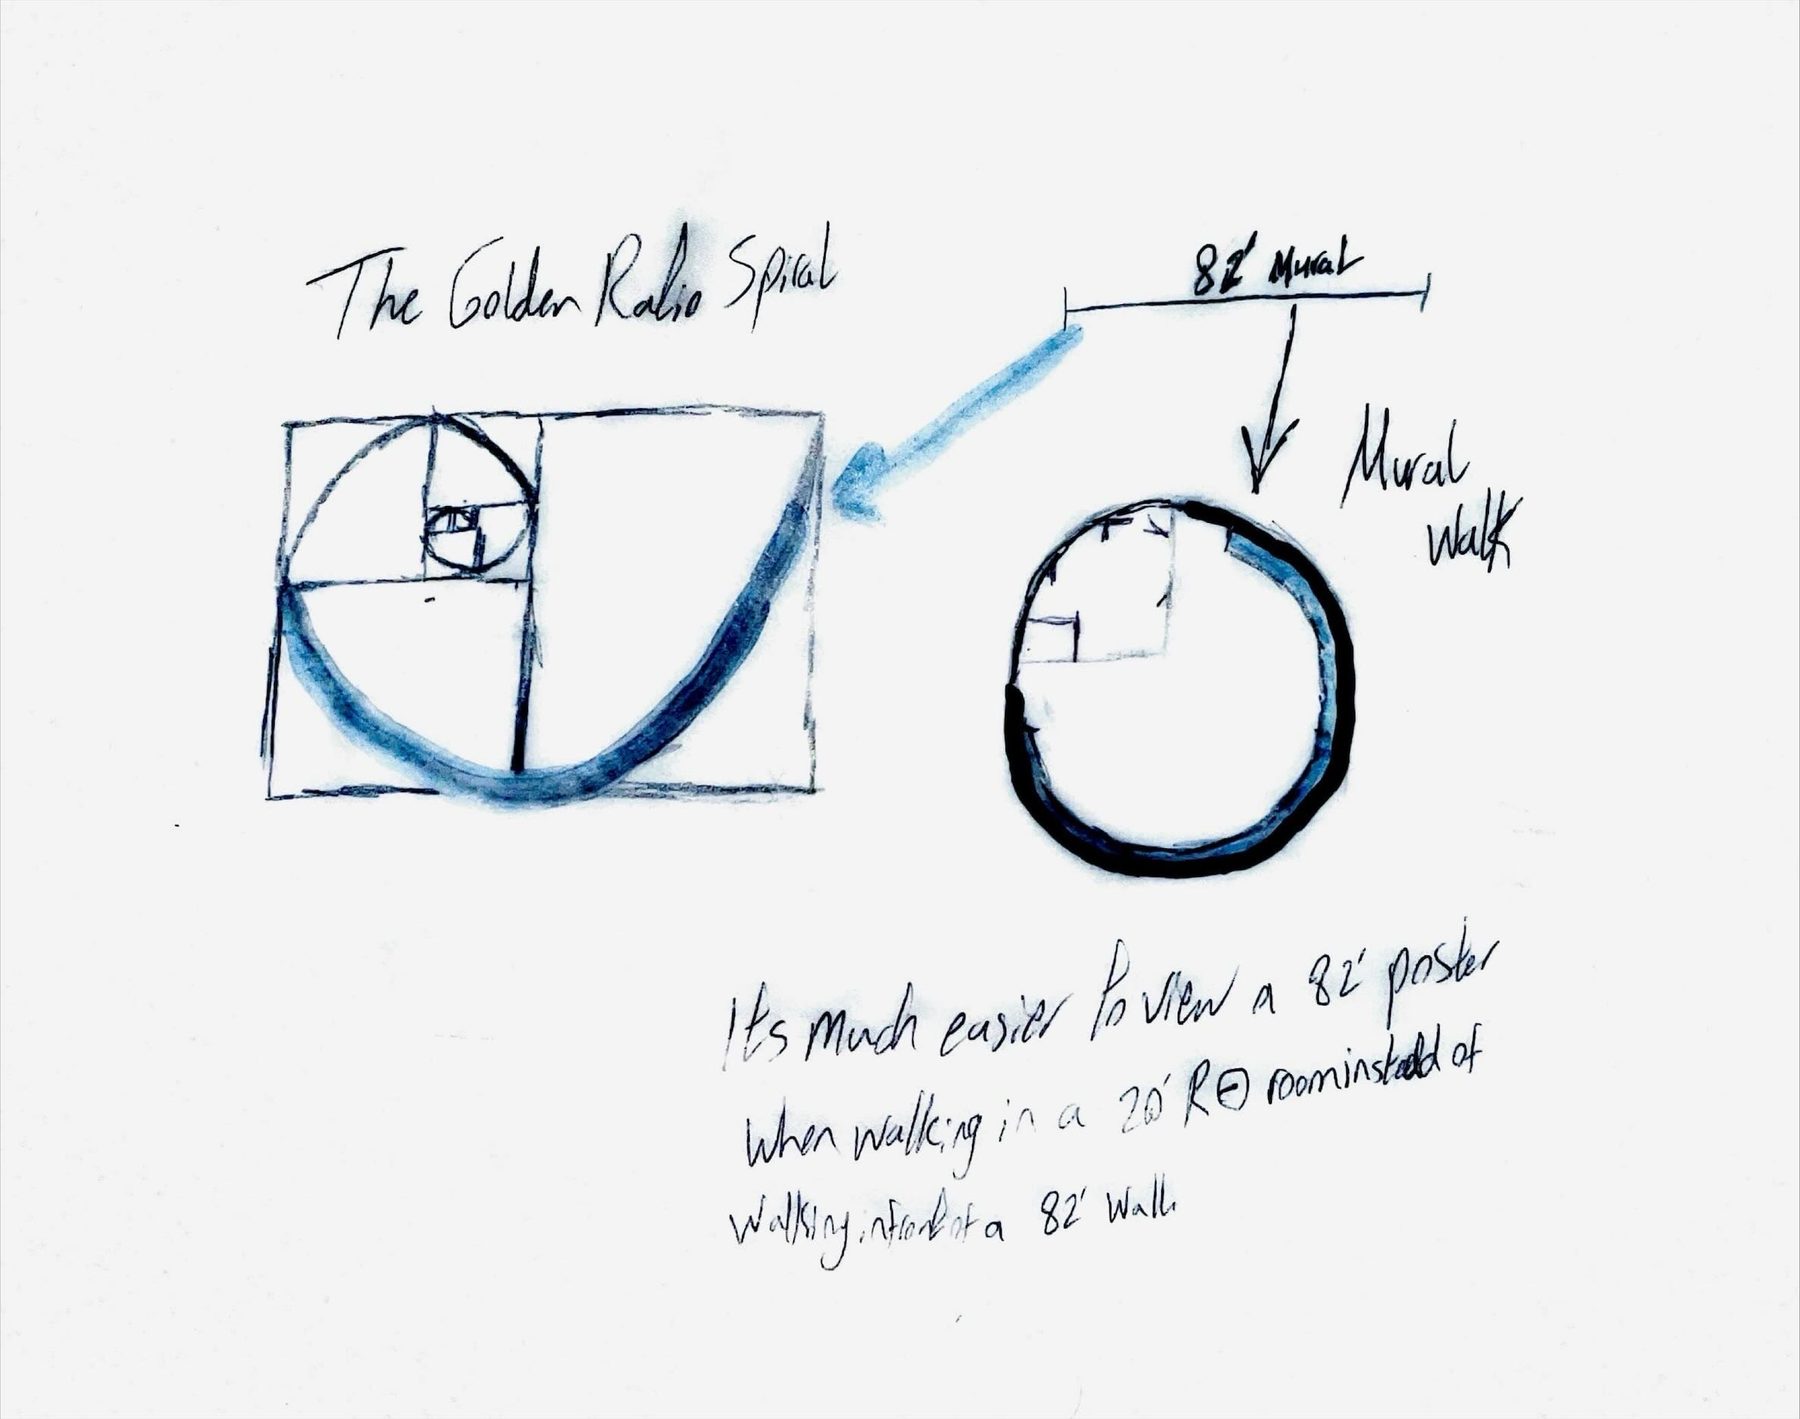 The Golden Ratio Spiral
82' Mural
Mural
Walk
Its much easier to view a 82' poster
when walking in a 20' R room instead of
walking infront of a 82' wall